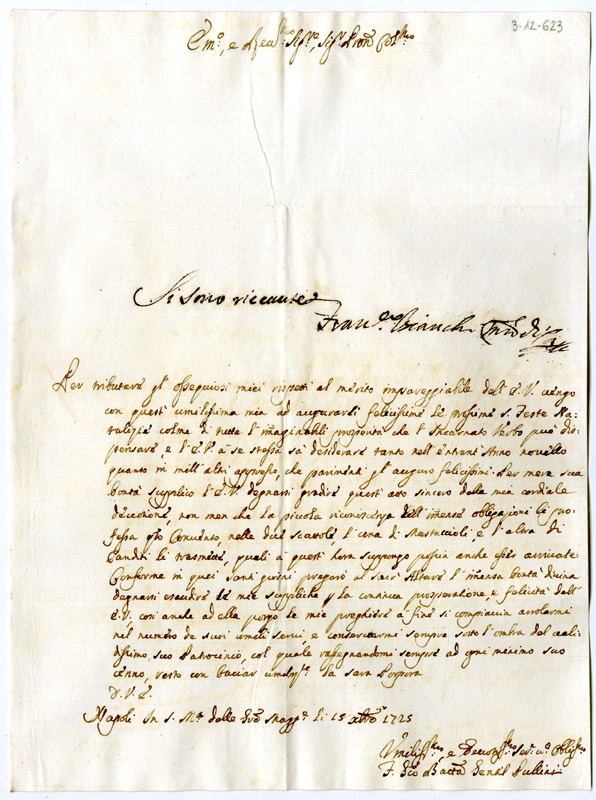 3-12-623
Em.o, e Rev.mo Sig.re, Sig.r Pron Col.mo
Si sono riceuute
Fran.co Bianch
Per tributare gl'ossequiosi miei rispetti al merito impareggiabile dell'E.V. vengo
con questa umilissima mia ad augurarli felicissime le prossime S. Feste Na-
talizie colme di tutte l'imaginabili prosperità che l'Incarnato Verbo può dis-
pensare, e l'E.V. à se stessa sà desiderare tanto nell'entrante Anno novello
quanto in mill'altri appresso, che parimenti gl'auguro felicissimi. Per mera sua
bontà supplico l'E.V. degnarsi gradire quest'atto sincero della mia cordiale
devozione, non men che la piccola riconoscenza dell'immense obligazioni le pro-
fessa q.sto Convento, nelle due scattole, l'una di Mastaccioli, e l'altra di
Canditi li trasmette, quali a quest'hora suppongo possin anche esser arrivate
Conforme in quei santi giorni pregarò al sacro Altare l'immensa bontà divina
degnarsi esaudire le mie suppliche p la continua prosperazione, e felicità dell'
E.V. così anche ad ella porgo le mie preghiere a fine si compiaccia arrolarmi
nel numero de suoi umili servi, e conservarmi sempre sotto l'ombra del vali-
dissimo suo Patrocinio, col quale rassegnandomi sempre ad ogni minimo suo
cenno, resto con baciar umilm.te la sacra Porpora
D.V.E.
Napoli In S. M.a delle Gra Magg.e li 15 Xbre 1725
Umiliss.mo, e Devotiss.mo Ser.e Oblig.mo
F. Gio Batta Gentil Pullini